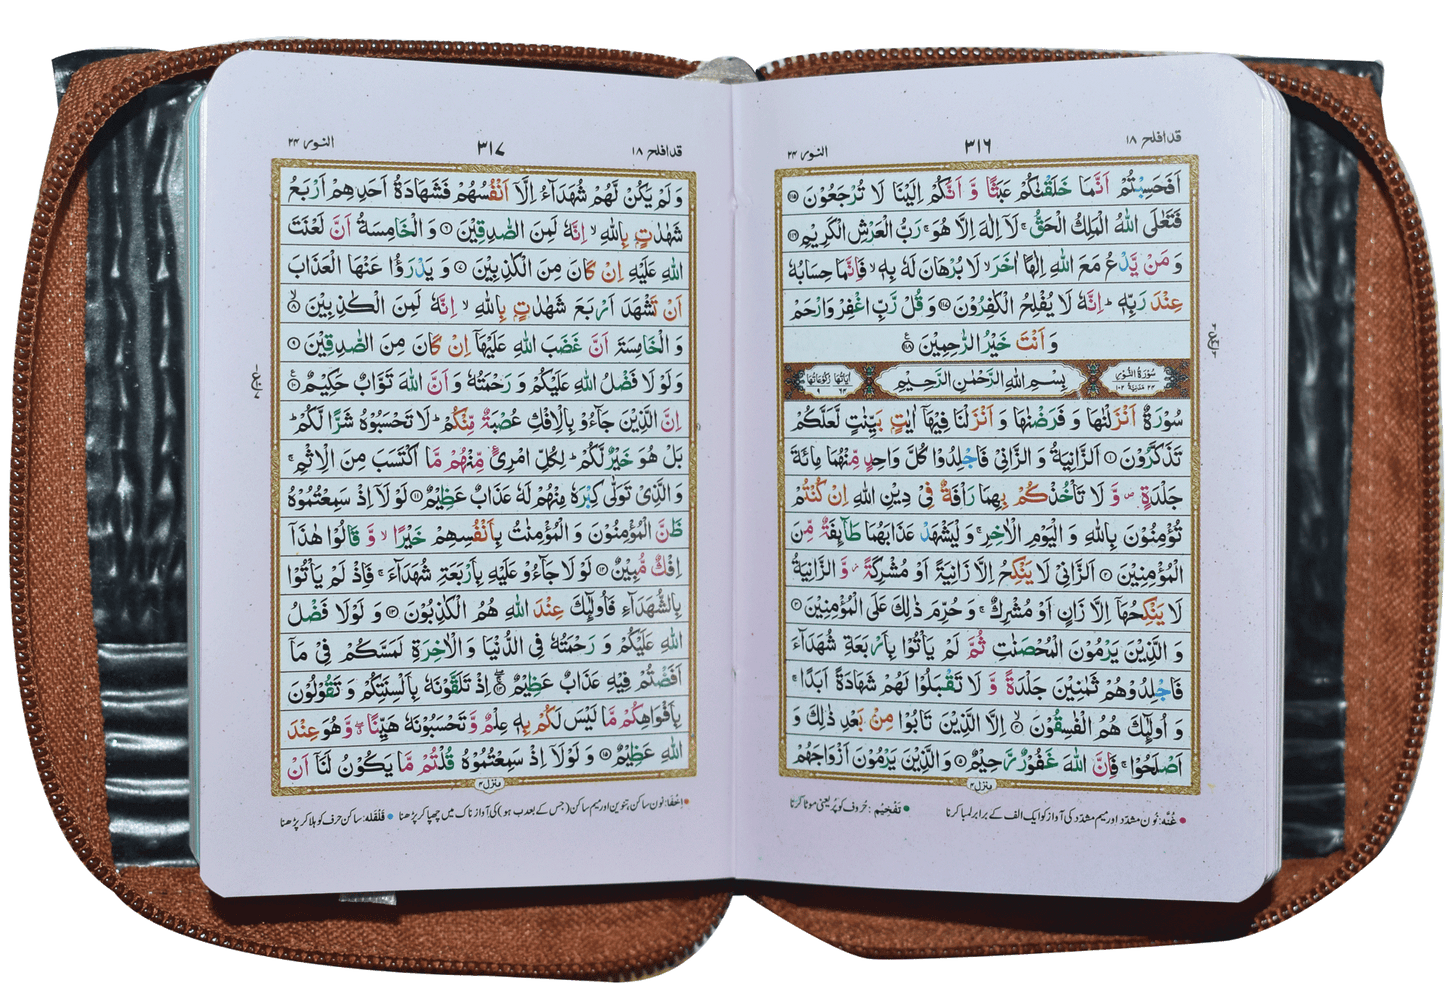 قد افلح ١٨
٣١٦
النور ٢٤
اَفَحَسِبْتُمْ اَنَّمَا خَلَقْنٰكُمْ عَبَثًا وَّ اَنَّكُمْ اِلَيْنَا لَا تُرْجَعُوْنَ ﴿١١٥﴾
فَتَعٰلَى اللّٰهُ الْمَلِكُ الْحَقُّ ۚ لَاۤ اِلٰهَ اِلَّا هُوَ ۚ رَبُّ الْعَرْشِ الْكَرِيْمِ ﴿١١٦﴾
وَ مَنْ يَّدْعُ مَعَ اللّٰهِ اِلٰهًا اٰخَرَ ۙ لَا بُرْهَانَ لَهٗ بِهٖ ۙ فَاِنَّمَا حِسَابُهٗ
عِنْدَ رَبِّهٖ ؕ اِنَّهٗ لَا يُفْلِحُ الْكٰفِرُوْنَ ﴿١١٧﴾ وَ قُلْ رَّبِّ اغْفِرْ وَارْحَمْ
وَ اَنْتَ خَيْرُ الرّٰحِمِيْنَ ﴿١١٨﴾
سُوْرَةُ النُّوْرِ ٢٤ مَدَنِيَّةٌ ١٠٢
بِسْمِ اللّٰهِ الرَّحْمٰنِ الرَّحِيْمِ
اٰيَاتُهَا ٦٤ رُكُوْعَاتُهَا ٩
سُوْرَةٌ اَنْزَلْنٰهَا وَ فَرَضْنٰهَا وَ اَنْزَلْنَا فِيْهَاۤ اٰيٰتٍۭ بَيِّنٰتٍ لَّعَلَّكُمْ
تَذَكَّرُوْنَ ﴿١﴾ اَلزَّانِيَةُ وَ الزَّانِيْ فَاجْلِدُوْا كُلَّ وَاحِدٍ مِّنْهُمَا مِائَةَ
جَلْدَةٍ ۪ وَّ لَا تَاْخُذْكُمْ بِهِمَا رَاْفَةٌ فِيْ دِيْنِ اللّٰهِ اِنْ كُنْتُمْ
تُؤْمِنُوْنَ بِاللّٰهِ وَ الْيَوْمِ الْاٰخِرِ ۚ وَ لْيَشْهَدْ عَذَابَهُمَا طَآىِٕفَةٌ مِّنَ
الْمُؤْمِنِيْنَ ﴿٢﴾ اَلزَّانِيْ لَا يَنْكِحُ اِلَّا زَانِيَةً اَوْ مُشْرِكَةً ؗ وَّ الزَّانِيَةُ
لَا يَنْكِحُهَاۤ اِلَّا زَانٍ اَوْ مُشْرِكٌ ۚ وَ حُرِّمَ ذٰلِكَ عَلَى الْمُؤْمِنِيْنَ ﴿٣﴾
وَ الَّذِيْنَ يَرْمُوْنَ الْمُحْصَنٰتِ ثُمَّ لَمْ يَاْتُوْا بِاَرْبَعَةِ شُهَدَآءَ
فَاجْلِدُوْهُمْ ثَمٰنِيْنَ جَلْدَةً وَّ لَا تَقْبَلُوْا لَهُمْ شَهَادَةً اَبَدًا ۚ
وَ اُولٰٓىِٕكَ هُمُ الْفٰسِقُوْنَ ﴿٤﴾ اِلَّا الَّذِيْنَ تَابُوْا مِنْۢ بَعْدِ ذٰلِكَ وَ
اَصْلَحُوْا ۚ فَاِنَّ اللّٰهَ غَفُوْرٌ رَّحِيْمٌ ﴿٥﴾ وَ الَّذِيْنَ يَرْمُوْنَ اَزْوَاجَهُمْ
منزل ٤
● غُنَّه: نون مشدّد اور میم مشدّد کی آواز کو ایک الف کے برابر لمبا کرنا ● تَفْخِيْم: حروف کو پُر یعنی موٹا کرنا
قد افلح ١٨
٣١٧
النور ٢٤
وَ لَمْ يَكُنْ لَّهُمْ شُهَدَآءُ اِلَّاۤ اَنْفُسُهُمْ فَشَهَادَةُ اَحَدِهِمْ اَرْبَعُ
شَهٰدٰتٍۭ بِاللّٰهِ ۙ اِنَّهٗ لَمِنَ الصّٰدِقِيْنَ ﴿٦﴾ وَ الْخَامِسَةُ اَنَّ لَعْنَتَ
اللّٰهِ عَلَيْهِ اِنْ كَانَ مِنَ الْكٰذِبِيْنَ ﴿٧﴾ وَ يَدْرَؤُا عَنْهَا الْعَذَابَ
اَنْ تَشْهَدَ اَرْبَعَ شَهٰدٰتٍۭ بِاللّٰهِ ۙ اِنَّهٗ لَمِنَ الْكٰذِبِيْنَ ﴿٨﴾
وَ الْخَامِسَةَ اَنَّ غَضَبَ اللّٰهِ عَلَيْهَاۤ اِنْ كَانَ مِنَ الصّٰدِقِيْنَ ﴿٩﴾
وَ لَوْ لَا فَضْلُ اللّٰهِ عَلَيْكُمْ وَ رَحْمَتُهٗ وَ اَنَّ اللّٰهَ تَوَّابٌ حَكِيْمٌ ﴿١٠﴾
اِنَّ الَّذِيْنَ جَآءُوْ بِالْاِفْكِ عُصْبَةٌ مِّنْكُمْ ؕ لَا تَحْسَبُوْهُ شَرًّا لَّكُمْ ؕ
بَلْ هُوَ خَيْرٌ لَّكُمْ ؕ لِكُلِّ امْرِئٍ مِّنْهُمْ مَّا اكْتَسَبَ مِنَ الْاِثْمِ ۚ
وَ الَّذِيْ تَوَلّٰى كِبْرَهٗ مِنْهُمْ لَهٗ عَذَابٌ عَظِيْمٌ ﴿١١﴾ لَوْ لَاۤ اِذْ سَمِعْتُمُوْهُ
ظَنَّ الْمُؤْمِنُوْنَ وَ الْمُؤْمِنٰتُ بِاَنْفُسِهِمْ خَيْرًا ۙ وَّ قَالُوْا هٰذَاۤ
اِفْكٌ مُّبِيْنٌ ﴿١٢﴾ لَوْ لَا جَآءُوْ عَلَيْهِ بِاَرْبَعَةِ شُهَدَآءَ ۚ فَاِذْ لَمْ يَاْتُوْا
بِالشُّهَدَآءِ فَاُولٰٓىِٕكَ عِنْدَ اللّٰهِ هُمُ الْكٰذِبُوْنَ ﴿١٣﴾ وَ لَوْ لَا فَضْلُ
اللّٰهِ عَلَيْكُمْ وَ رَحْمَتُهٗ فِي الدُّنْيَا وَ الْاٰخِرَةِ لَمَسَّكُمْ فِيْ مَاۤ
اَفَضْتُمْ فِيْهِ عَذَابٌ عَظِيْمٌ ﴿١٤﴾ اِذْ تَلَقَّوْنَهٗ بِاَلْسِنَتِكُمْ وَ تَقُوْلُوْنَ
بِاَفْوَاهِكُمْ مَّا لَيْسَ لَكُمْ بِهٖ عِلْمٌ وَّ تَحْسَبُوْنَهٗ هَيِّنًا ۖ وَّ هُوَ عِنْدَ
اللّٰهِ عَظِيْمٌ ﴿١٥﴾ وَ لَوْ لَاۤ اِذْ سَمِعْتُمُوْهُ قُلْتُمْ مَّا يَكُوْنُ لَنَاۤ اَنْ
منزل ٤
● اِخْفَا: نون ساکن، تنوین اور میم ساکن (جس کے بعد ب ہو) کی آواز ناک میں چھپا کر پڑھنا ● قَلْقَلَه: ساکن حرف کو ہلا کر پڑھنا